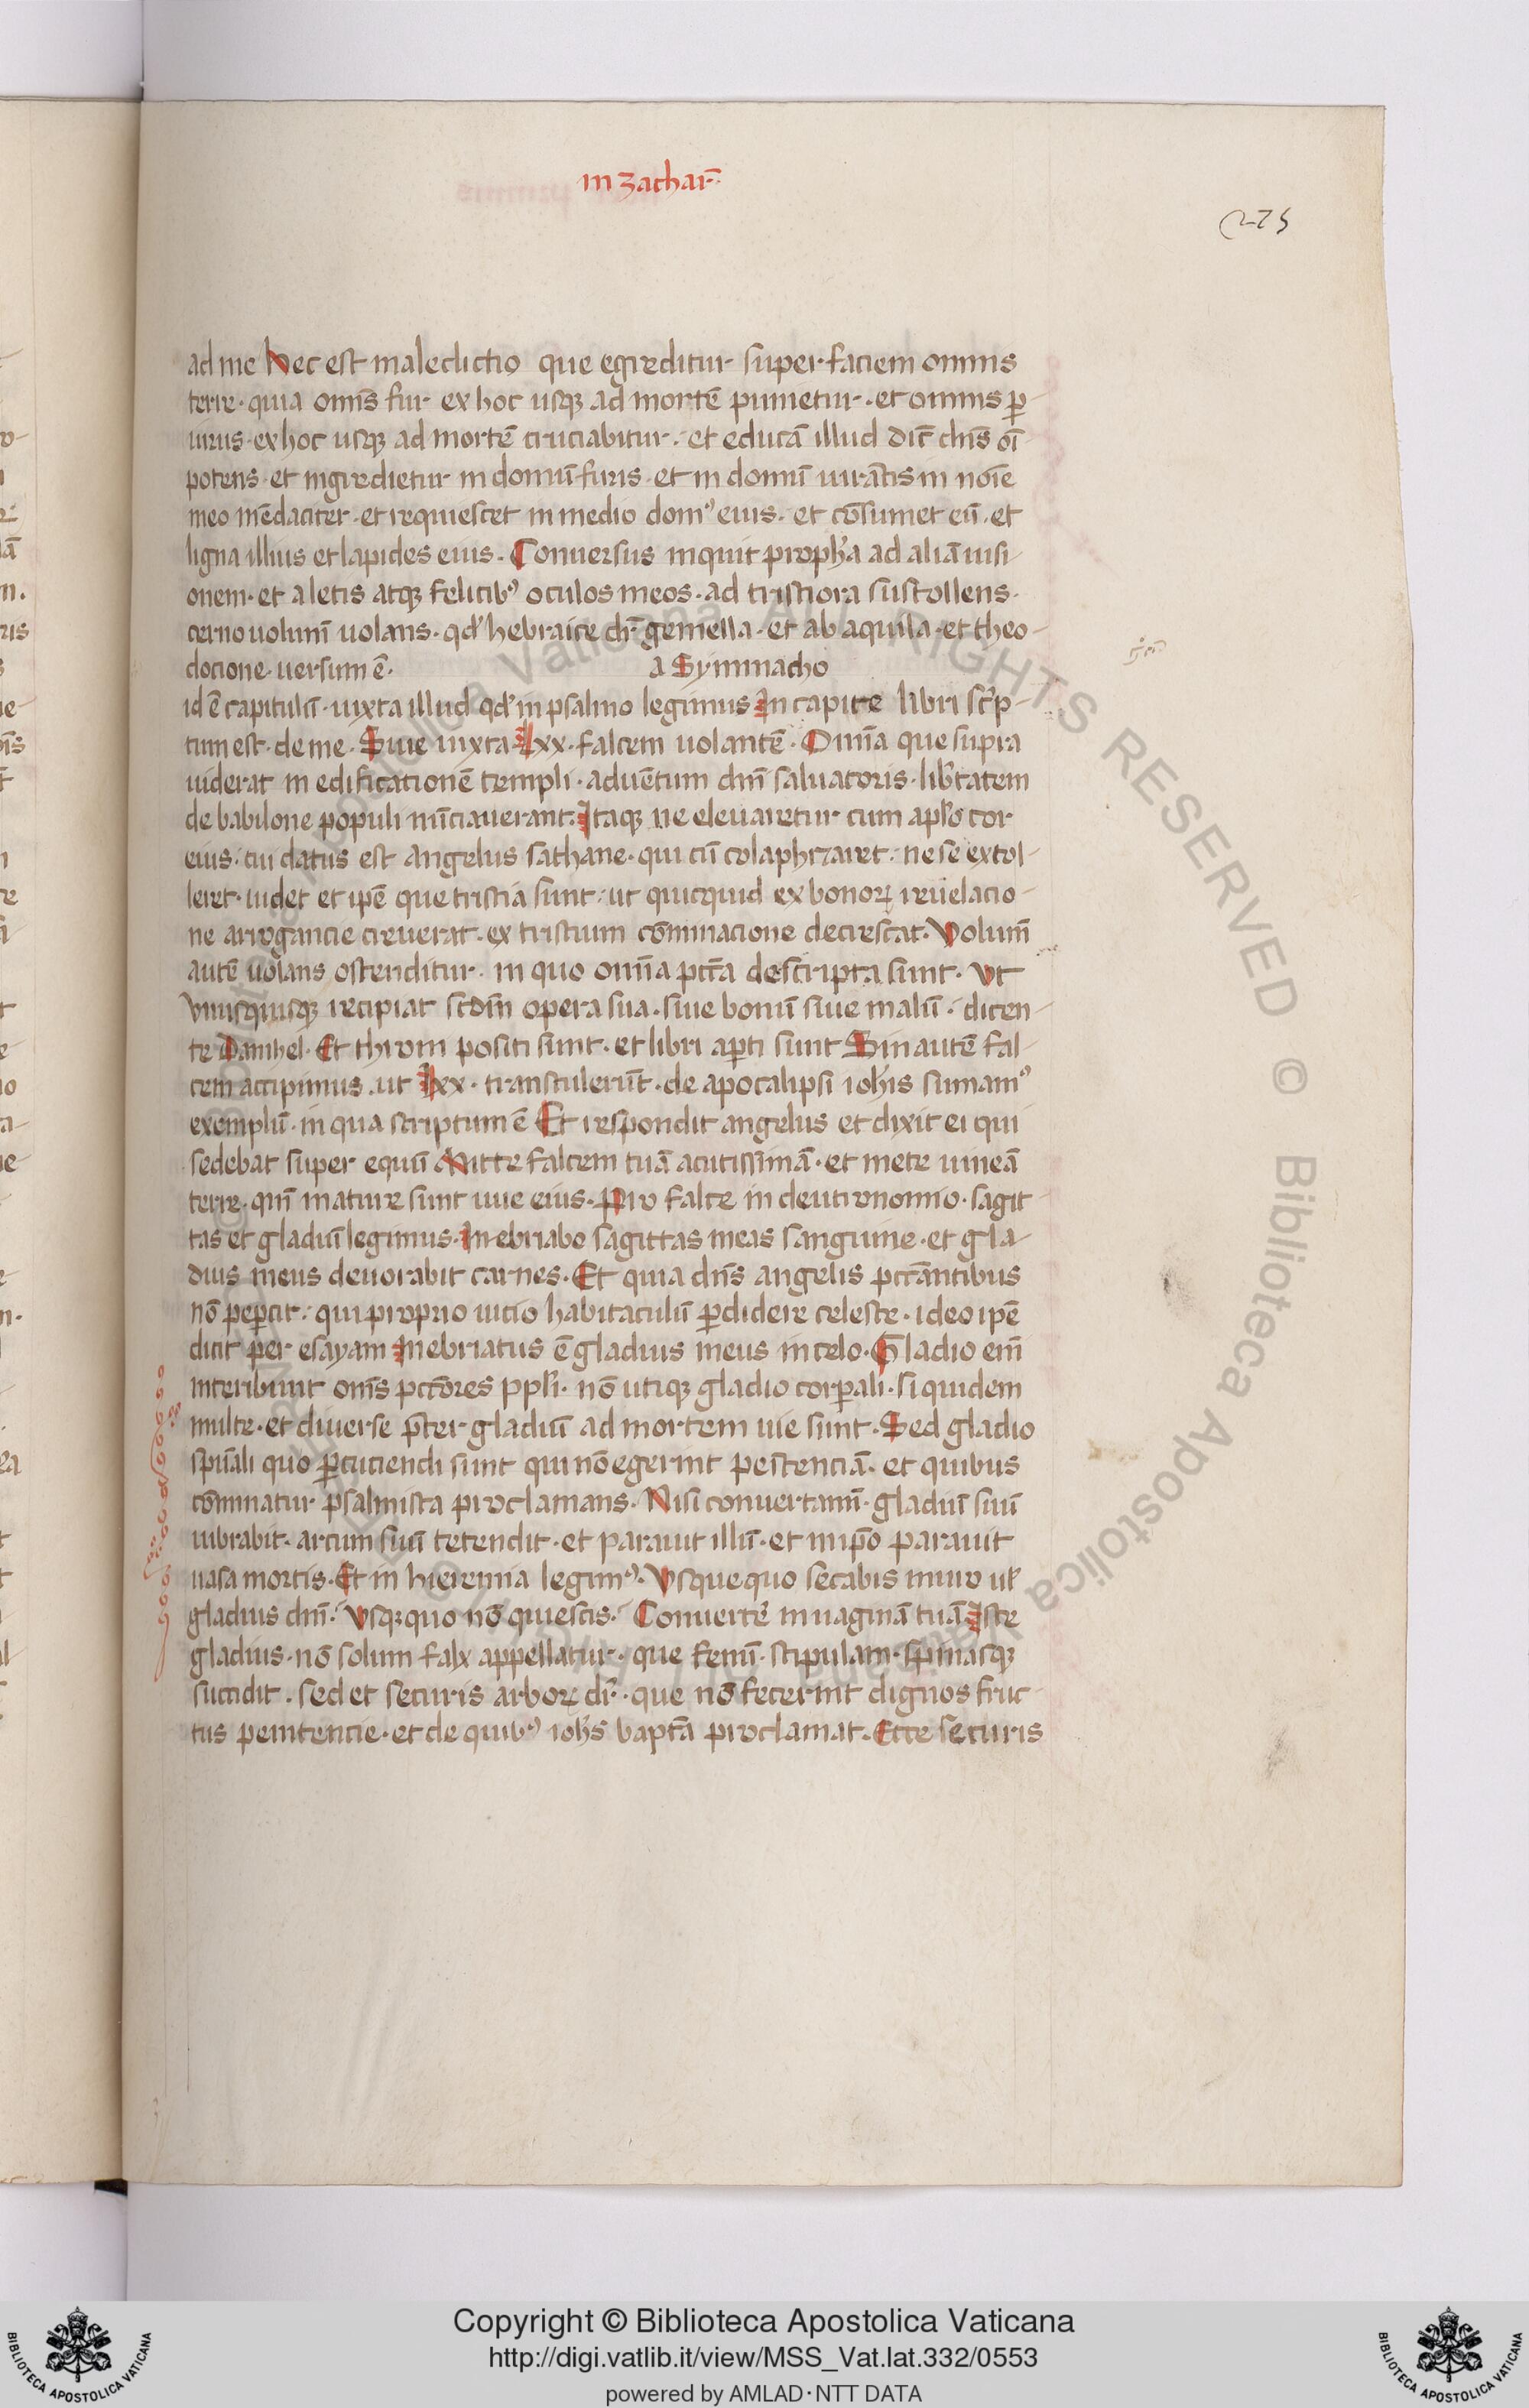 in zachar̄
275
ad me Hec est maledictio que egreditur super faciem omnis
terre · quia om̄s fur ex hoc usq; ad mortē punietur · et omnis ꝑ
iurus · ex hoc usq; ad mortē cruciabitur · et educā illud dic̄ dn̄s oī
potens · et ingredietur in domū furis · et in domū iurātis in noīe
meo mēdaciter · et requiescet in medio domꝰ eius · et cōsumet eū · et
ligna illius et lapides eius . Conuersus inquit proph̄a ad aliā uisi
onem · et a letis atq; felicibꝰ oculos meos · ad tristiora sustollens ·
cerno uolum̄ uolans · qd̓ hebraice dr̄ gemella · et ab aquila · et theo
docione · uersum ē · a Symmacho
id ē capitulū · iuxta illud qd̓ in psalmo legimus In capite libri sc̄p
tum est · de me . Siue iuxta lxx · falcem uolantē . Omīa que supra
uiderat in edificationē templi · aduētum dn̄i saluatoris · lib̄tatem
de babilone populi nūciauerant . Itaq; ne eleuaretur cum apl̄o cor
eius · cui datus est angelus sathane · qui eū colaphizaret · ne se extol
leret · uidet et ipē que tristia sunt · ut quicquid ex bonoꝝ reuelacio
ne arrogancie creuerat · ex tristium cōminacione decrescat . Volum̄
autē uolans ostenditur · in quo omīa pct̄a descripta sunt . Vt
vnusquisq; recipiat scdm̄ opera sua · siue bonū siue malū · dicen
te Danihel . Et throni positi sunt · et libri aꝑti sunt Sin autē fal
cem accipimus · ut lxx · transtulerūt · de apocalipsi ioh̄is sumamꝰ
exemplū · in qua scriptum ē Et respondit angelus et dixit ei qui
sedebat super equū Mitte falcem tuā acutissimā · et mete uineā
terre · qm̄ mature sunt uue eius . Pro falce in deutronomio · sagit
tas et gladiū legimus . Inebriabo sagittas meas sanguine · et gla
dius meus deuorabit carnes . Et quia dn̄s angelis pccāntibus
nō peꝑcit · qui proprio uicio habitaculū ꝑdidere celeste · ideo ipē
dicit per esayam Inebriatus ē gladius meus in celo . Gladio em̄
interibunt om̄s pctōres ppl̄i · nō utiq; gladio corꝑali · si quidem
multe · et diuerse p̄ter gladiū ad mortem uie sunt . Sed gladio
spūali quo ꝑcuciendi sunt qui nō egerint pestenciā · et quibus
cōminatur psalmista proclamans . Nisi conuertamī · gladiū suū
uibrabit · arcum suū tetendit · et parauit illū · et in ip̄o parauit
uasa mortis . Et in hieremia legimꝰ . Vsquequo secabis
gladius dn̄i · Vsq;quo nō quiescis · Conuertē in uaginā tuā Iste
gladius · nō solum falx appellatur · que fenū · stipulam · spinasq;
succidit . sed et securis arboꝝ dr̄ · que nō fecerint dignos fruc
tus penitencie · et de quibꝰ ioh̄s bapt̄a proclamat . Ecce securis
© Biblioteca Apostolica Vaticana ALL RIGHTS RESERVED © Biblioteca Apostolica Vaticana ALL RIGHTS RESERVED
Copyright © Biblioteca Apostolica Vaticana
http://digi.vatlib.it/view/MSS_Vat.lat.332/0553
powered by AMLAD·NTT DATA
BIBLIOTECA APOSTOLICA VATICANA
BIBLIOTECA APOSTOLICA VATICANA